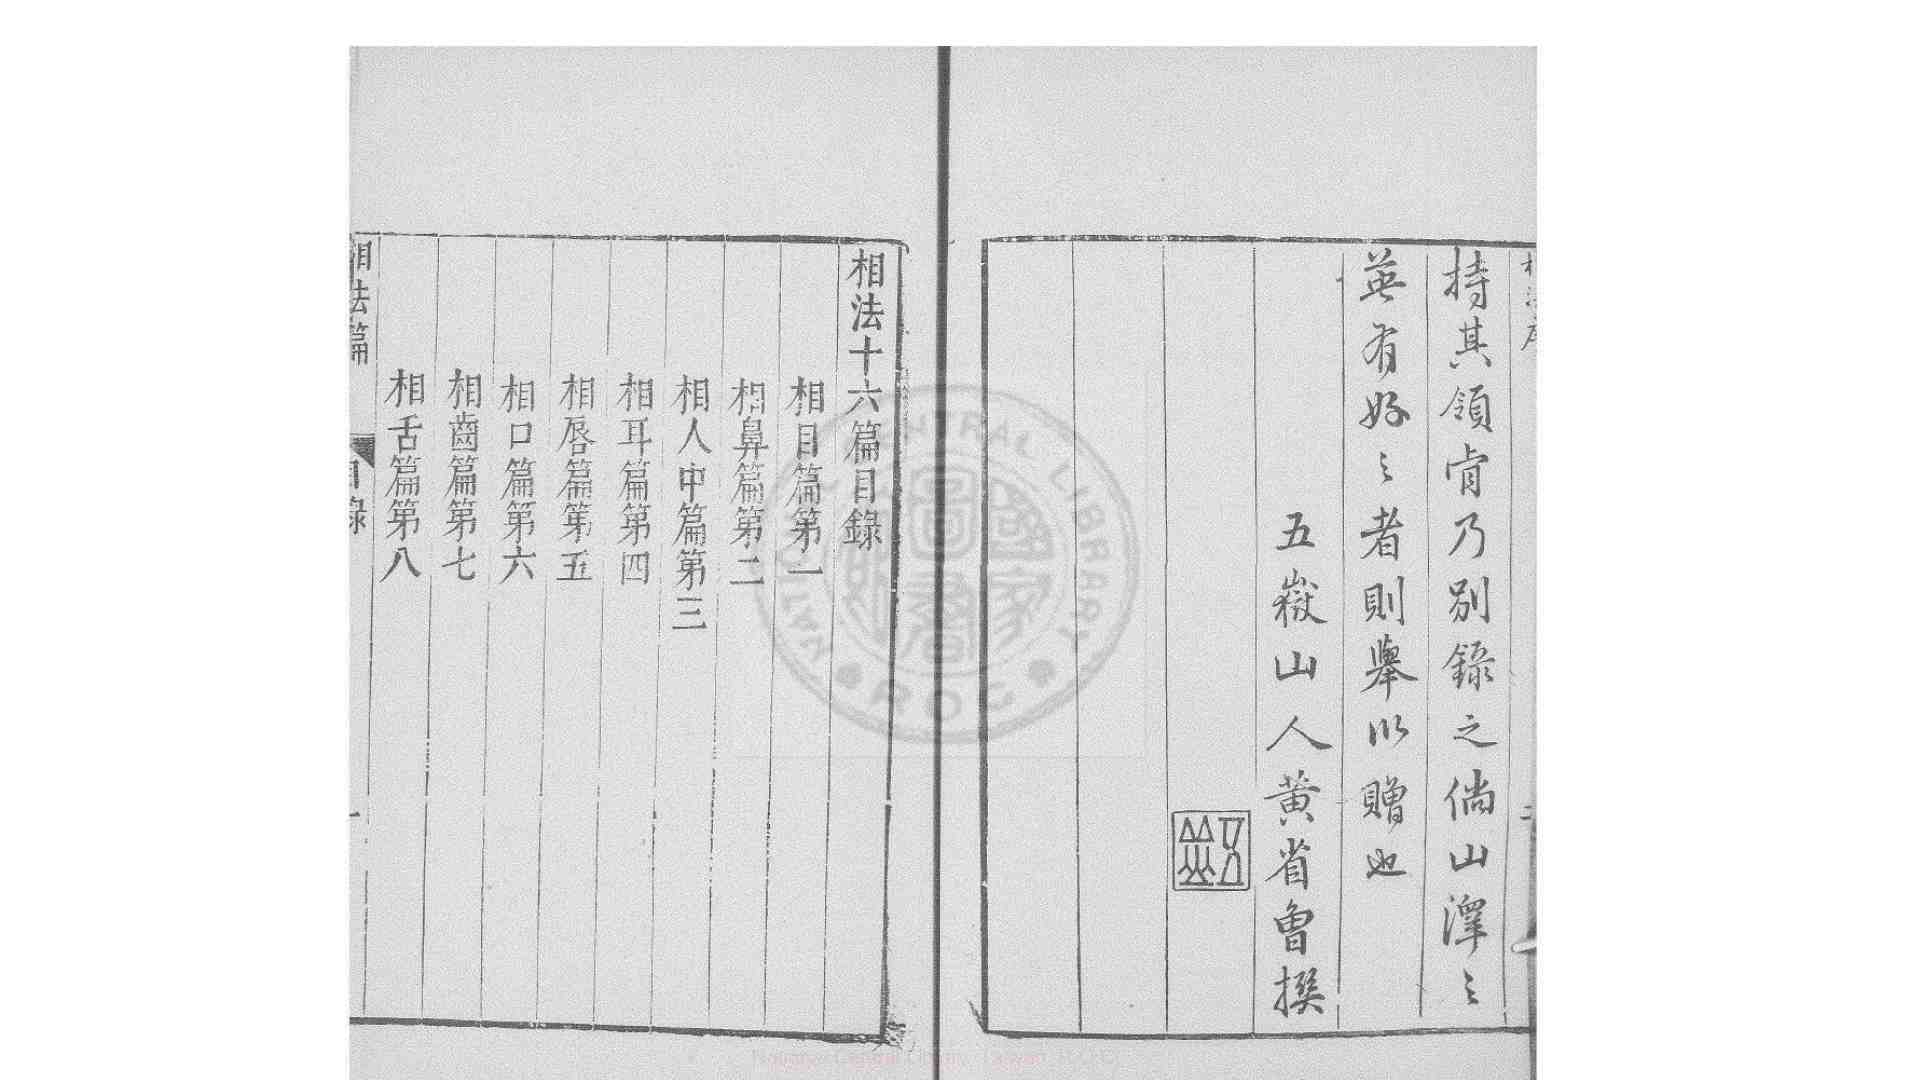 持其領肯乃别錄之倘山澤之
英有好之者則舉以贈也
五嶽山人黃省曾撰
五岳
相法十六篇目錄
相目篇第一
相鼻篇第二
相人中篇第三
相耳篇第四
相唇篇第五
相口篇第六
相齒篇第七
相舌篇第八
相法篇 目錄 一
NATIONAL CENTRAL LIBRARY
國家圖書館
ROC
National Central Library, Taiwan, R.O.C.